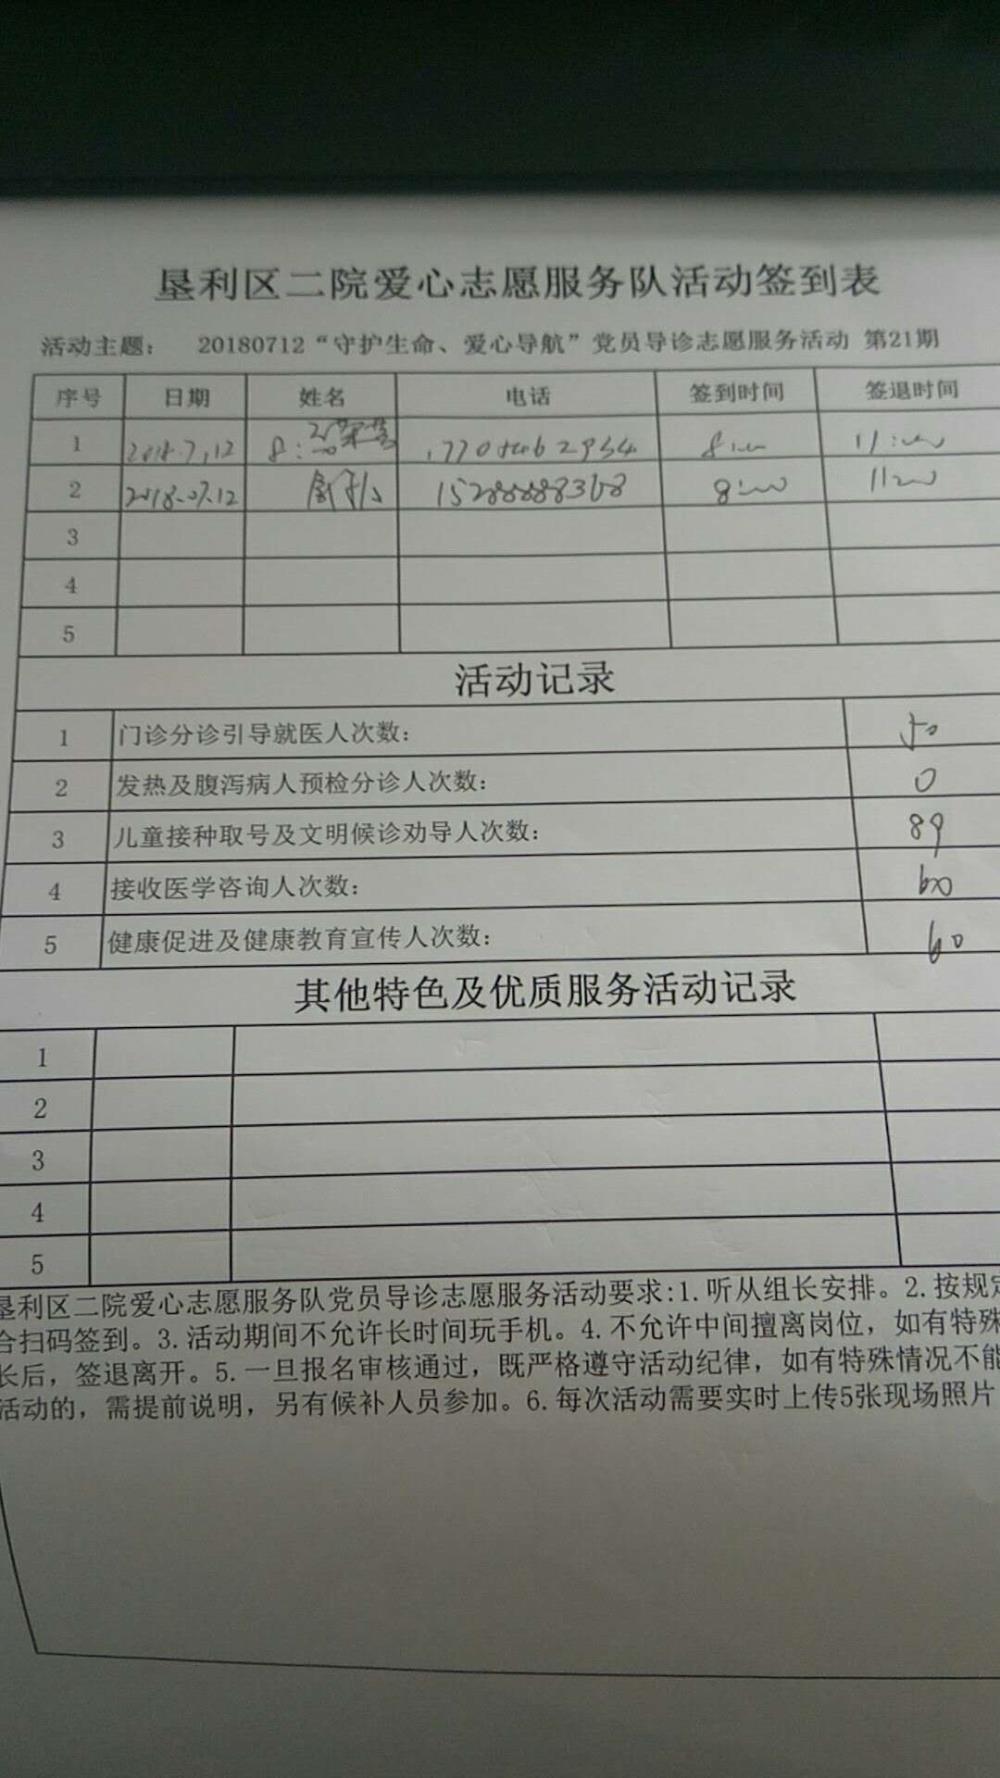 垦利区二院爱心志愿服务队活动签到表
活动主题： 20180712“守护生命、爱心导航”党员导诊志愿服务活动 第21期
序号 日期 姓名 电话 签到时间 签退时间
1 2018.7.12 8: 8:00 11:00
2 2018.07.12 15288888368 8:00 11:00
3
4
5
活动记录
1 门诊分诊引导就医人次数： 50
2 发热及腹泻病人预检分诊人次数： 0
3 儿童接种取号及文明候诊劝导人次数： 89
4 接收医学咨询人次数： 60
5 健康促进及健康教育宣传人次数： 60
其他特色及优质服务活动记录
1
2
3
4
5
垦利区二院爱心志愿服务队党员导诊志愿服务活动要求:1.听从组长安排。2.按规定
合扫码签到。3.活动期间不允许长时间玩手机。4.不允许中间擅离岗位，如有特殊
长后，签退离开。5.一旦报名审核通过，既严格遵守活动纪律，如有特殊情况不能
活动的，需提前说明，另有候补人员参加。6.每次活动需要实时上传5张现场照片